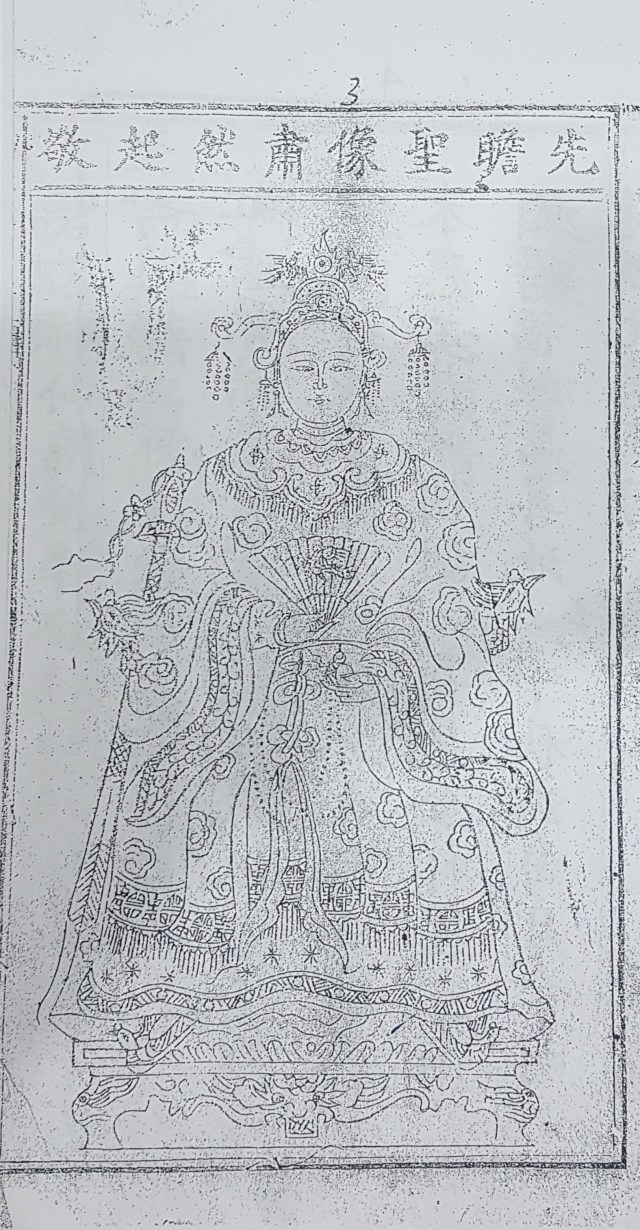 3
先瞻聖像肅然起敬